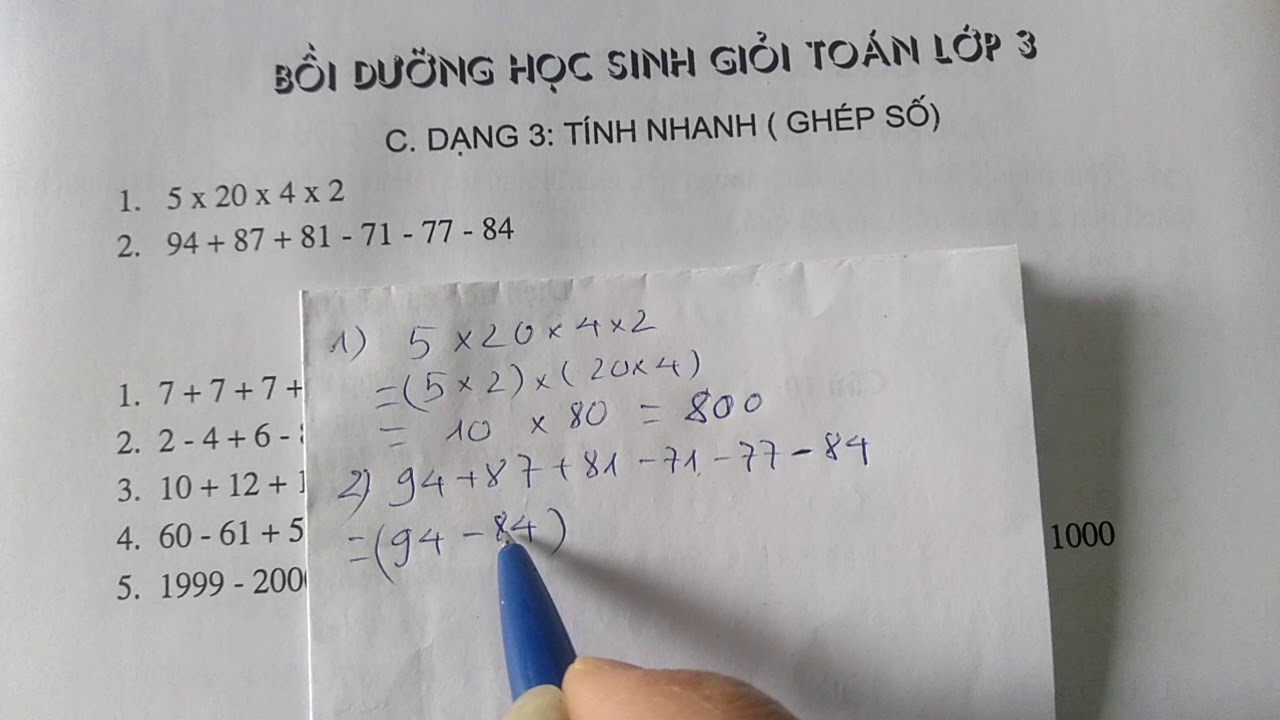 BỒI DƯỠNG HỌC SINH GIỎI TOÁN LỚP 3
C. DẠNG 3: TÍNH NHANH ( GHÉP SỐ)
1. 5 x 20 x 4 x 2
2. 94 + 87 + 81 - 71 - 77 - 84
1) 5 × 20 × 4 × 2
= (5 × 2) × (20 × 4)
= 10 × 80 = 800
2) 94 + 87 + 81 - 71 - 77 - 84
= (94 - 84)
1. 7 + 7 + 7 +
2. 2 - 4 + 6 -
3. 10 + 12 +
4. 60 - 61 + 5
1000
5. 1999 - 200